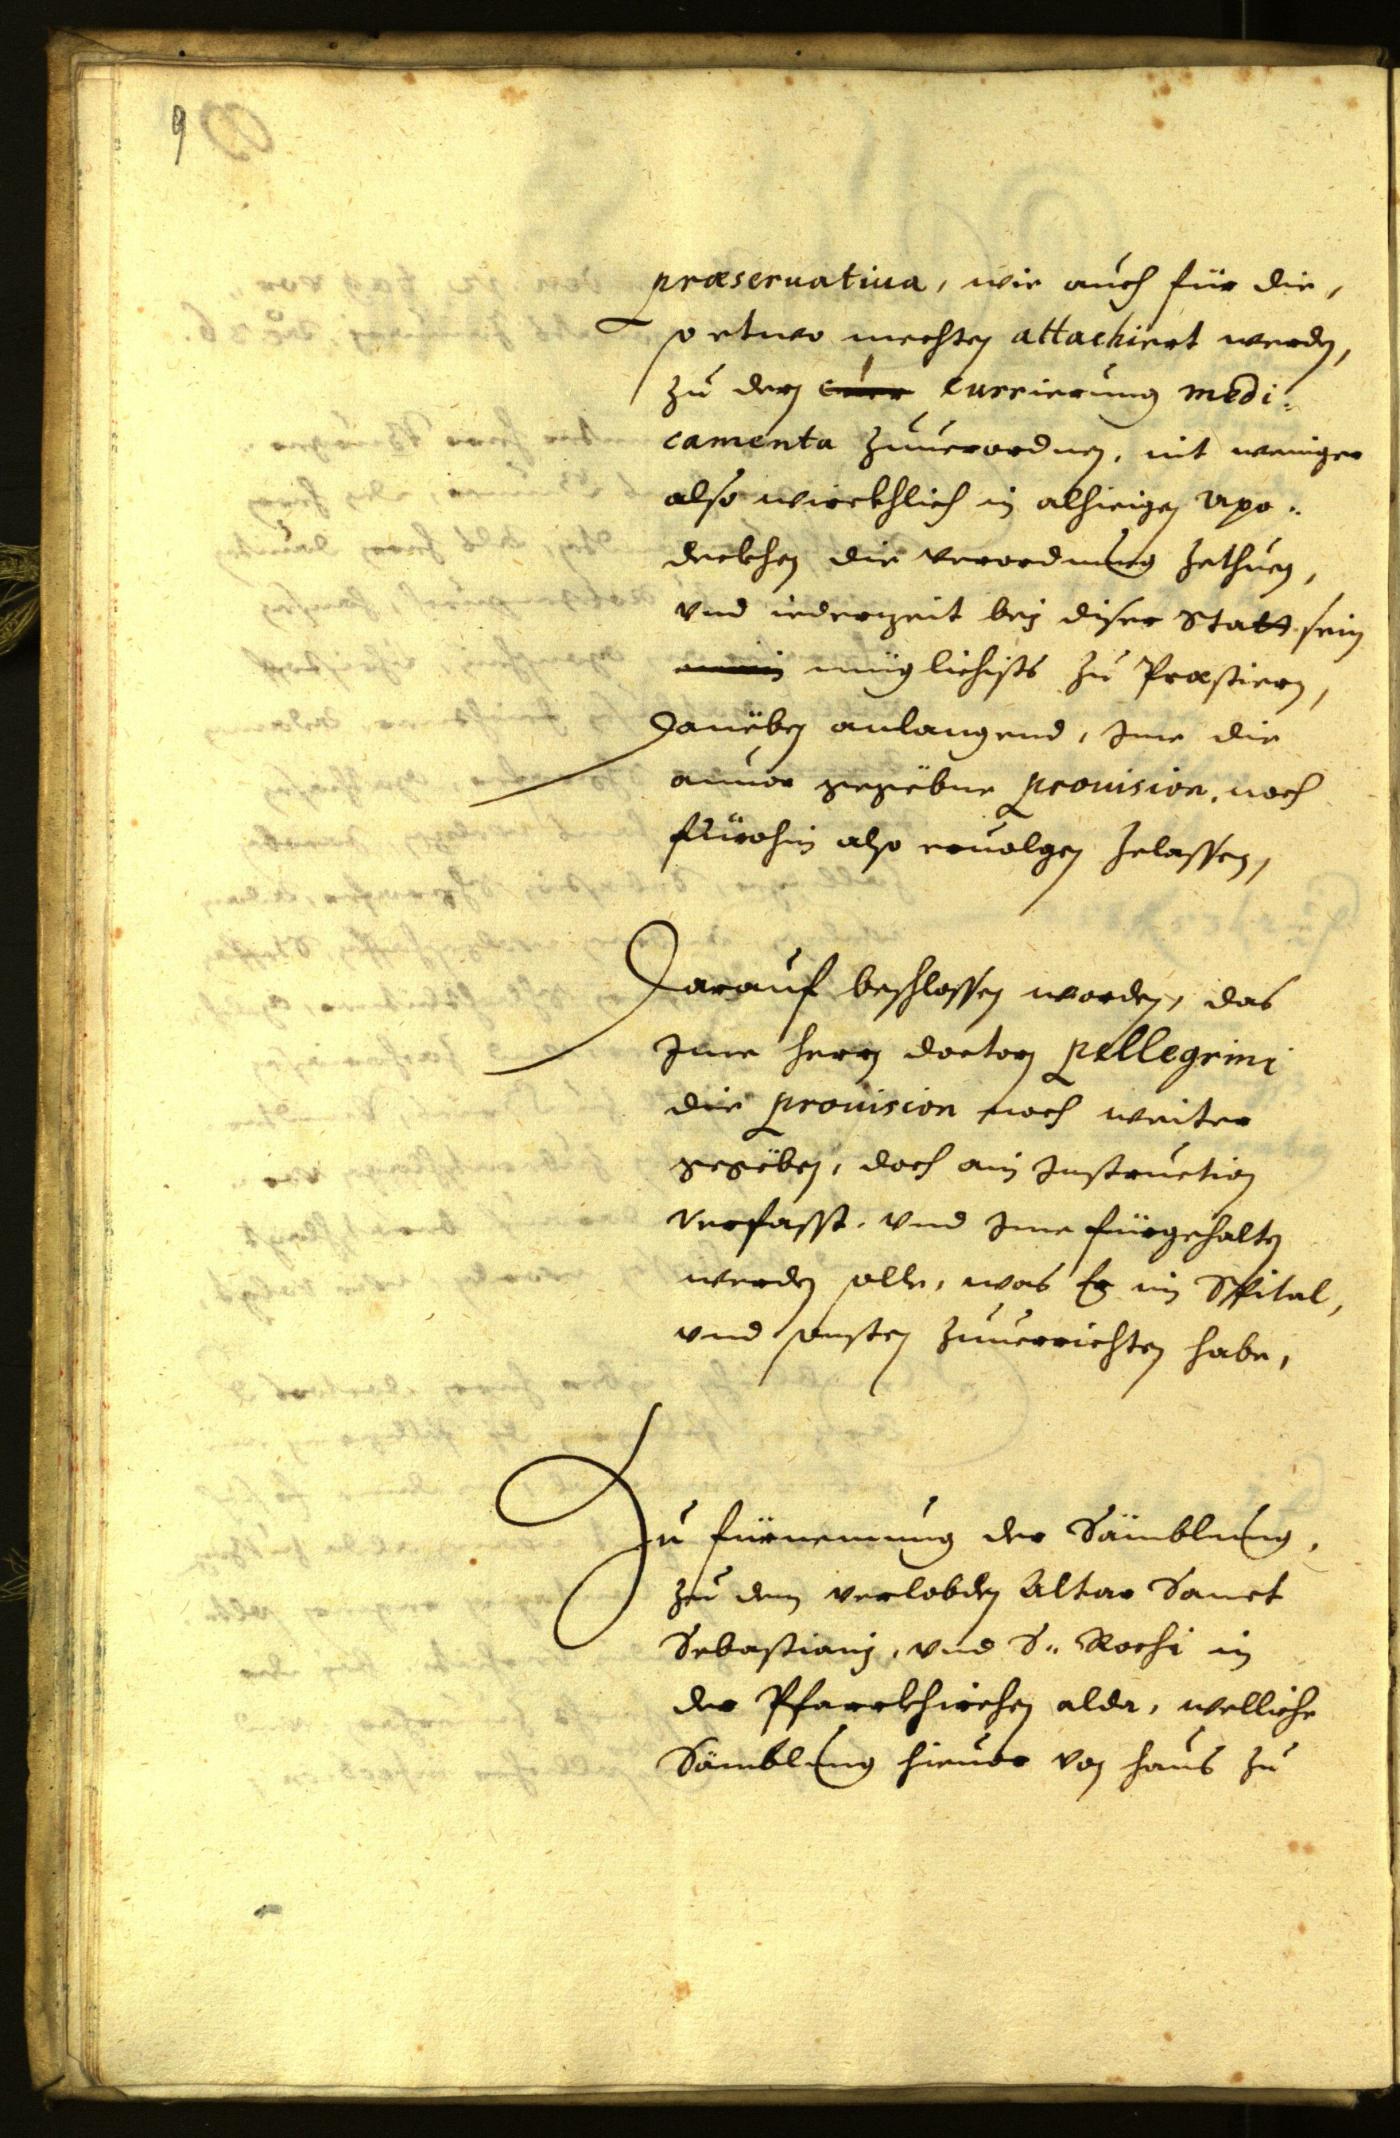 9
præseruatiua, wie auch für die,
so etwo mechten attachiert werden,
zu dern currierung medi-
camenta zuuerordnen, nit weniger
also würckhlich in alhieigen Apo-
deckhen die verordnung zethuen,
vnd iederzeit bej diser Statt sein
müglichists zu Præstiern,
Danëben anlangend, Ime die
anuor gegëbne prouision, noch
fürohin also eruolgen zelassen,
Darauf beschlossen worden, das
Ime herrn doctorn Pellegrini
die prouision noch weiter
gegëben, doch ain Instruction
verfasst, vnd Ime fürgehalten
werden solle, was Er im Spital,
vnd sonsten zuuerrichten habe,
Zu fürnemung der Sämblung,
zu dem verlobden Altar Sanct
Sebastianj, vnd S. Rochi in
der Pfarrkhirchen alda, welliche
Sämblung hieuor von haus zu